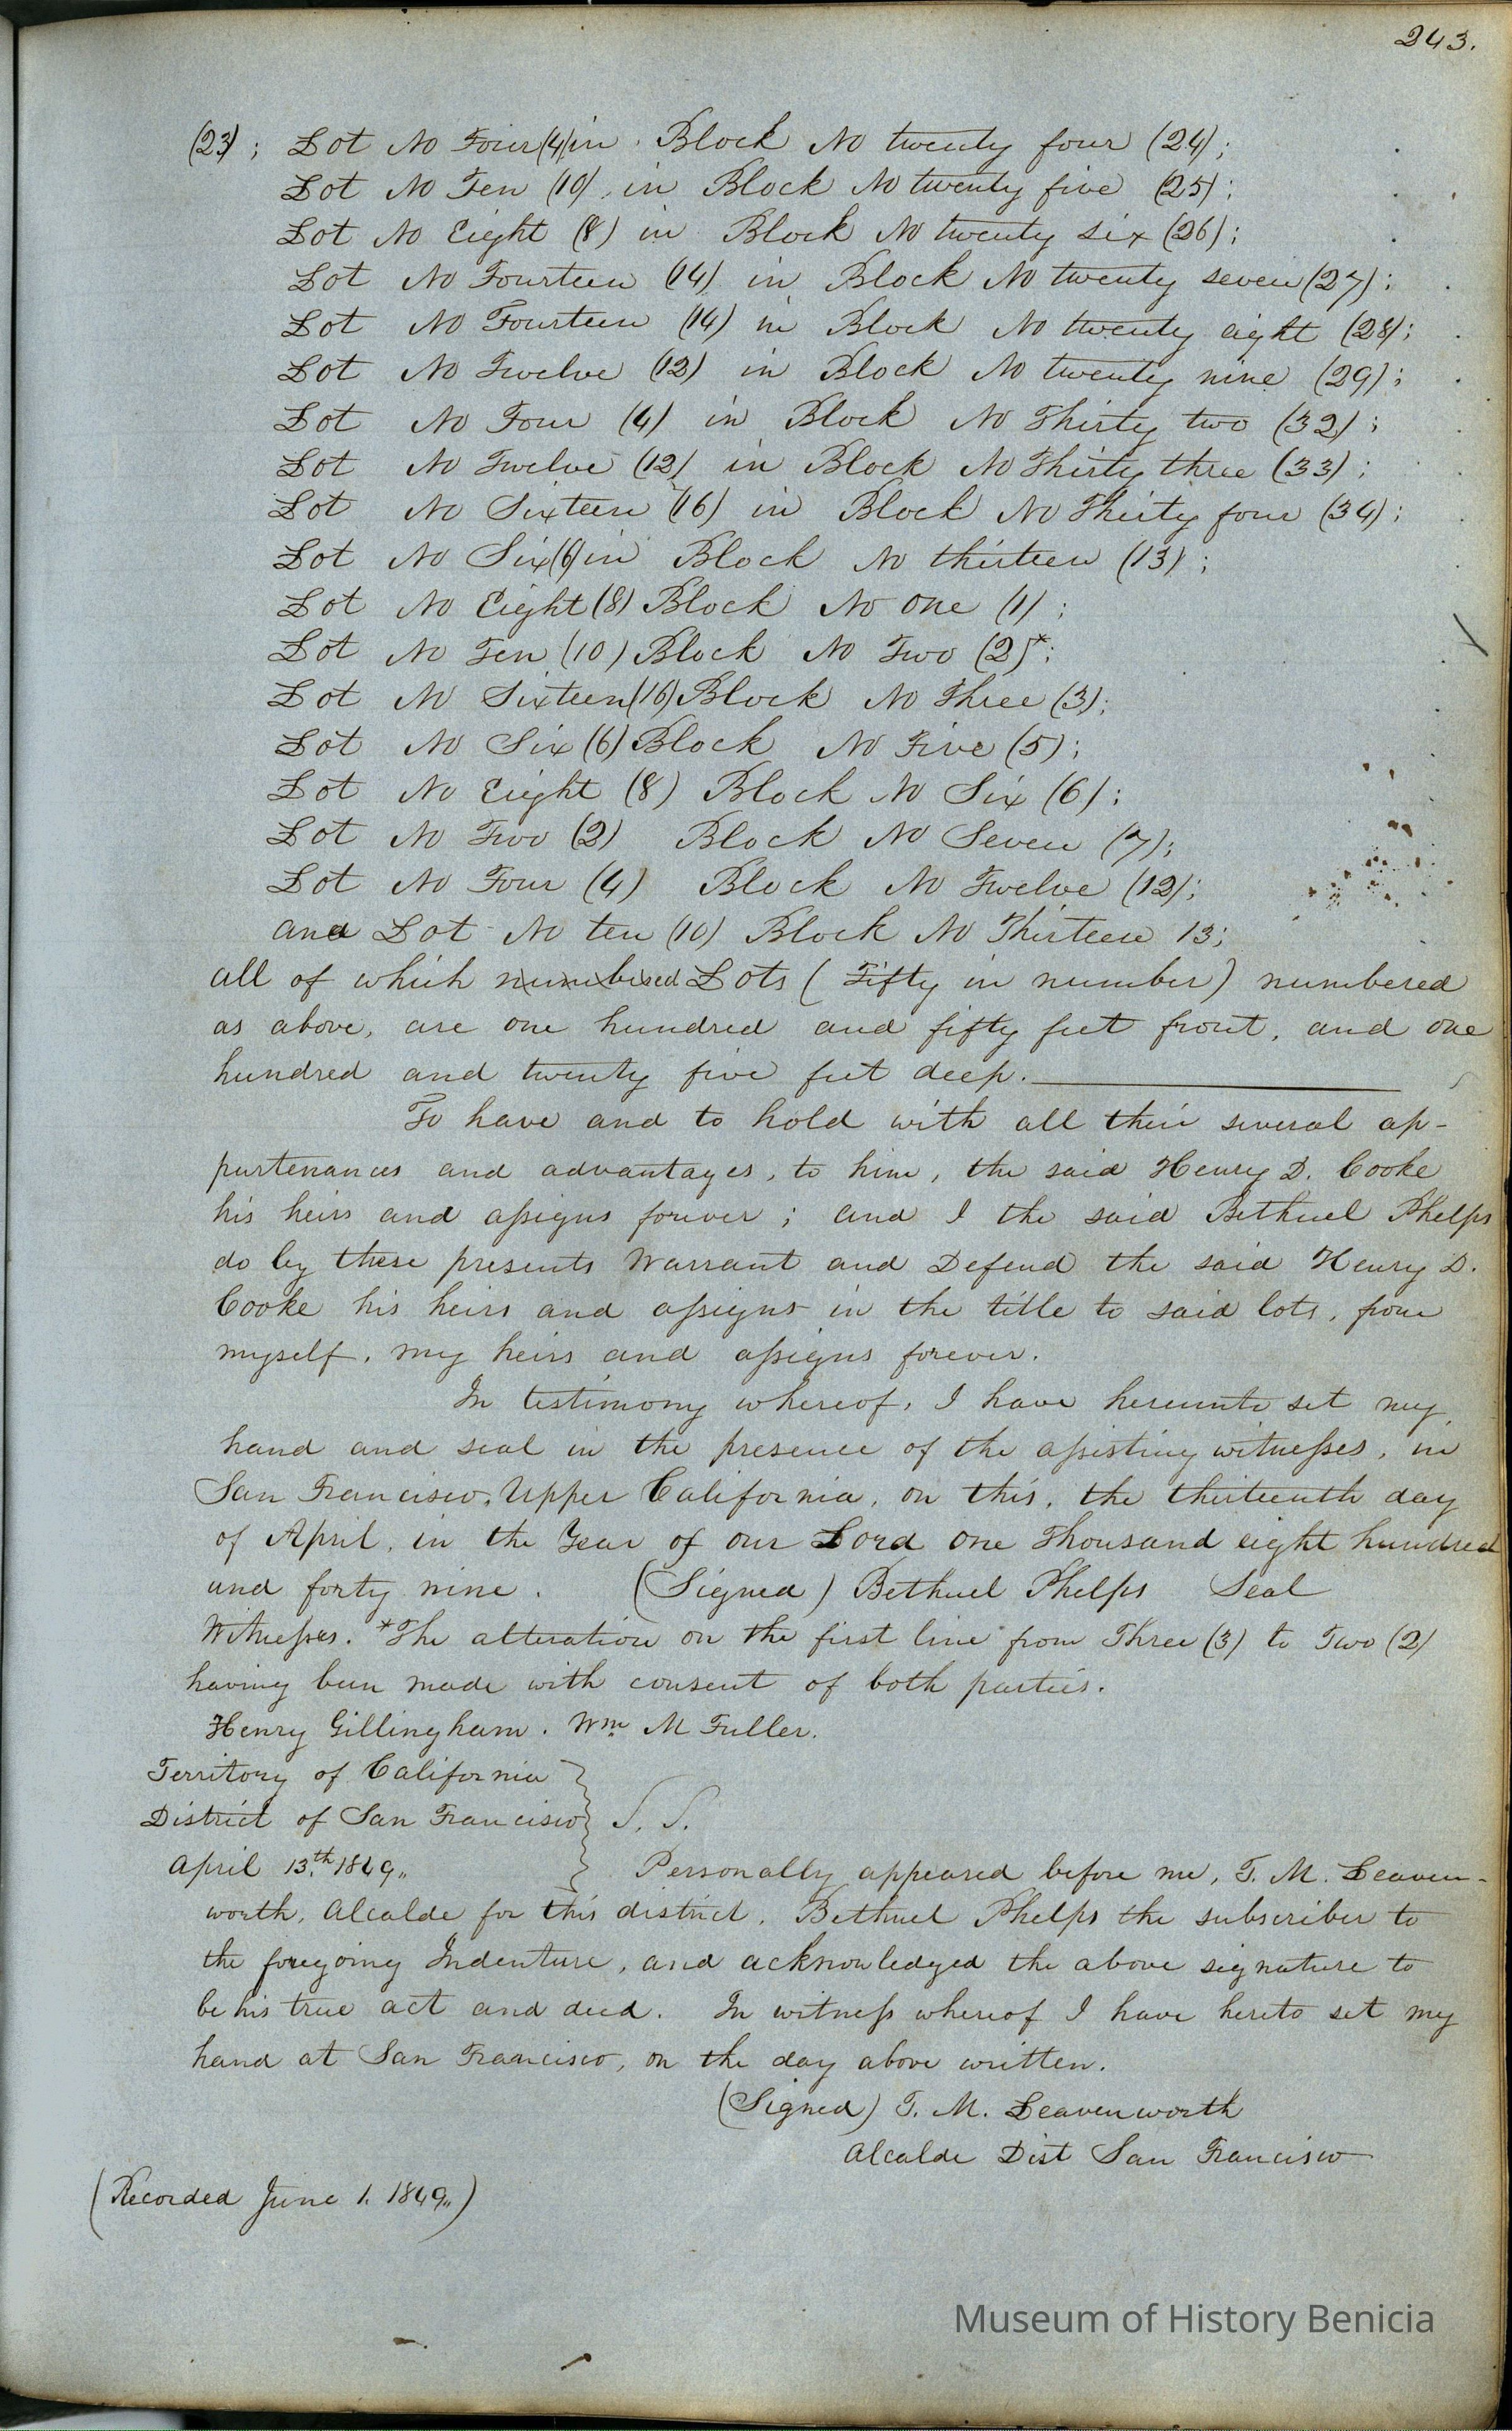 243.
(23); Lot No Four (4) in Block No twenty four (24);
Lot No Ten (10), in Block No twenty five (25);
Lot No Eight (8) in Block No twenty six (26);
Lot No Fourteen (14) in Block No twenty seven (27);
Lot No Fourteen (14) in Block No twenty eight (28);
Lot No Twelve (12) in Block No twenty nine (29);
Lot No Four (4) in Block No Thirty two (32);
Lot No Twelve (12) in Block No Thirty three (33);
Lot No Sixteen (16) in Block No Thirty four (34);
Lot No Six (6) in Block No thirteen (13);
Lot No Eight (8) Block No One (1);
Lot No Ten (10) Block No Two (2)*;
Lot No Sixteen (16) Block No Three (3);
Lot No Six (6) Block No Five (5);
Lot No Eight (8) Block No Six (6);
Lot No Two (2) Block No Seven (7);
Lot No Four (4) Block No Twelve (12);
and Lot No ten (10) Block No Thirteen 13;
all of which numbered Lots (Fifty in number) numbered
as above, are one hundred and fifty feet front, and one
hundred and twenty five feet deep.
To have and to hold with all their several ap-
purtenances and advantages, to him, the said Henry D. Cooke
his heirs and assigns forever; and I the said Bethuel Phelps
do by these presents Warrant and Defend the said Henry D.
Cooke his heirs and assigns in the title to said lots, from
myself, my heirs and assigns forever.
In testimony whereof, I have hereunto set my
hand and seal in the presence of the assisting witnesses, in
San Francisco, Upper California, on this, the thirteenth day
of April, in the Year of our Lord One Thousand eight hundred
and forty nine. (Signed) Bethuel Phelps Seal
Witnesses. *The alteration on the first line from Three (3) to Two (2)
having been made with consent of both parties.
Henry Gillingham. Wm M Fuller.
Territory of California
District of San Francisco S. S.
April 13th 1849. Personally appeared before me, T. M. Leaven-
worth, Alcalde for this district, Bethuel Phelps the subscriber to
the foregoing Indenture, and acknowledged the above signature to
be his true act and deed. In witness whereof I have hereto set my
hand at San Francisco, on the day above written.
(Signed) T. M. Leavenworth
Alcalde Dist San Francisco
(Recorded June 1. 1849.)
Museum of History Benicia